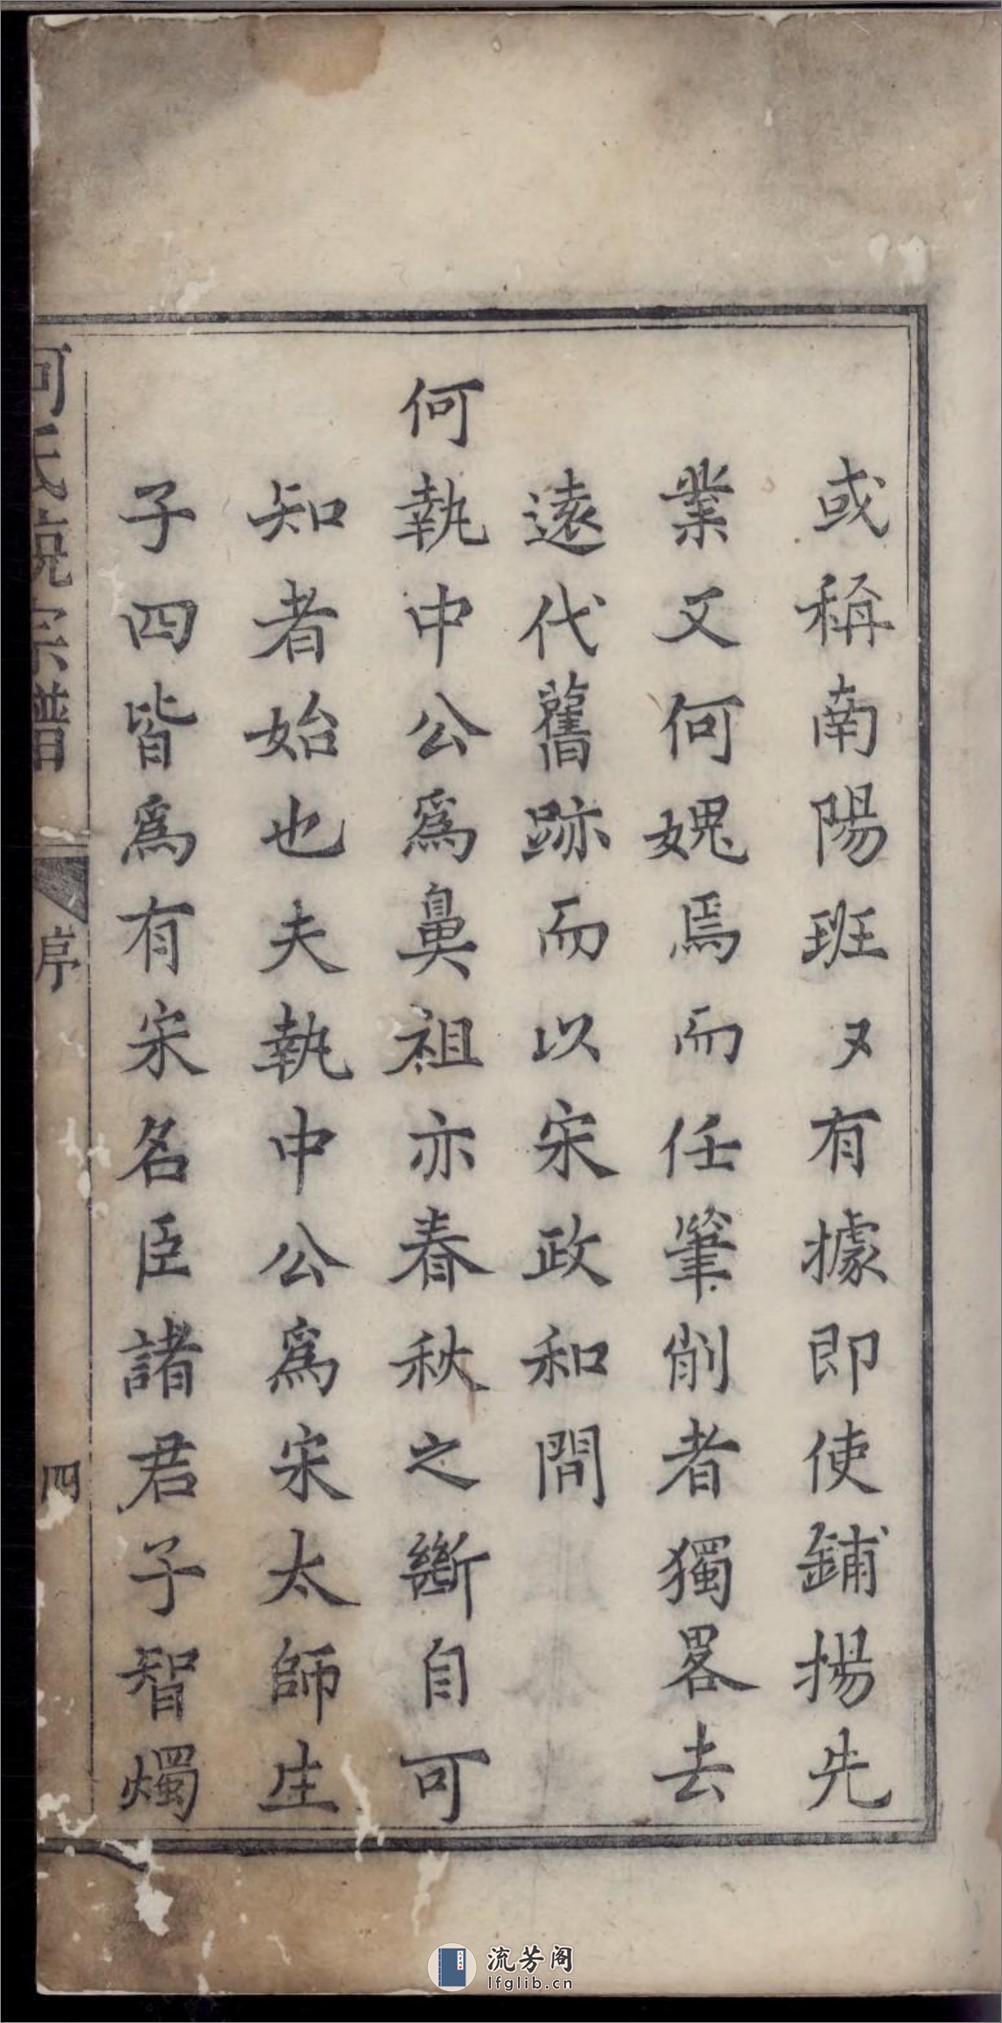 或稱南陽班又有據即使鋪揚先
業又何媿焉而任筆削者獨畧去
遠代舊跡而以宋政和間
何執中公爲鼻祖亦春秋之斷自可
知者始也夫執中公爲宋太師生
子四皆爲有宋名臣諸君子智燭
何氏統宗譜
序
四
流芳阁
lfglib.cn